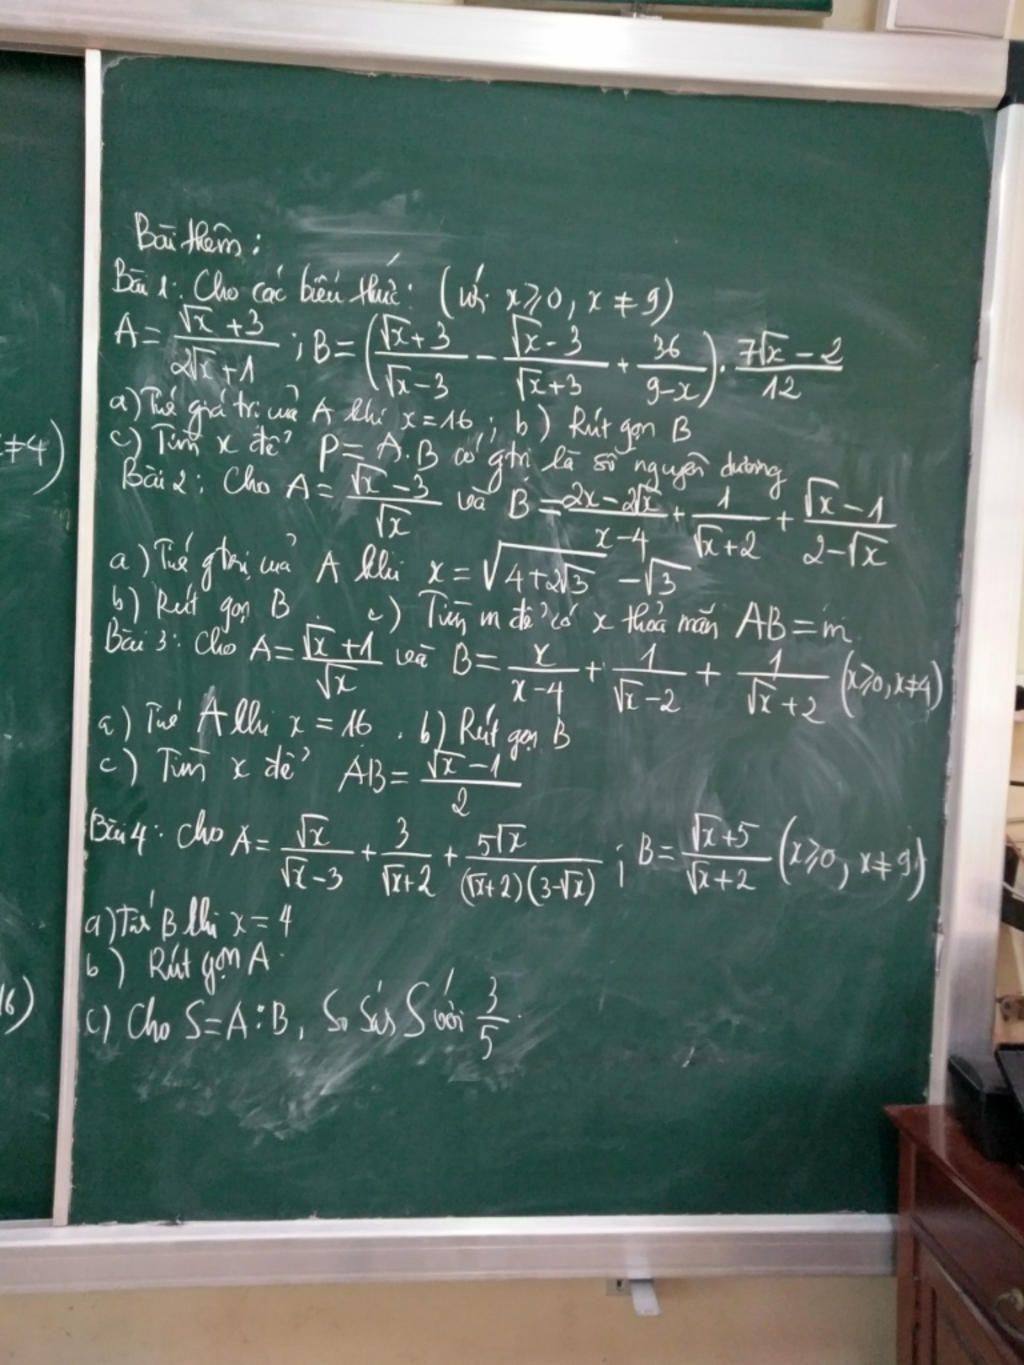 Bài thêm:
Bài 1: Cho các biểu thức: (với x ≥ 0, x ≠ 9)
A = (√x + 3)/(2√x + 1) ; B = ((√x + 3)/(√x - 3) - (√x - 3)/(√x + 3) + 36/(9 - x)) . (7√x - 2)/12
a) Tính giá trị của A khi x = 16 ; b) Rút gọn B
c) Tìm x để P = A.B có gtrị là số nguyên dương
Bài 2: Cho A = (√x - 3)/√x và B = (2x - 2√x)/(x - 4) + 1/(√x + 2) + (√x - 1)/(2 - √x)
a) Tính gtrị của A khi x = √(4 + 2√3) - √3
b) Rút gọn B c) Tìm m để có x thỏa mãn AB = m
Bài 3: Cho A = (√x + 1)/√x và B = x/(x - 4) + 1/(√x - 2) + 1/(√x + 2) (x ≥ 0, x ≠ 4)
a) Tính A khi x = 16 . b) Rút gọn B
c) Tìm x để AB = (√x - 1)/2
Bài 4: Cho A = √x/(√x - 3) + 3/(√x + 2) + 5√x/((√x + 2)(3 - √x)) ; B = (√x + 5)/(√x + 2) (x ≥ 0, x ≠ 9)
a) Tính B khi x = 4
b) Rút gọn A
c) Cho S = A : B, So sánh S với 3/5
≠4)
16)